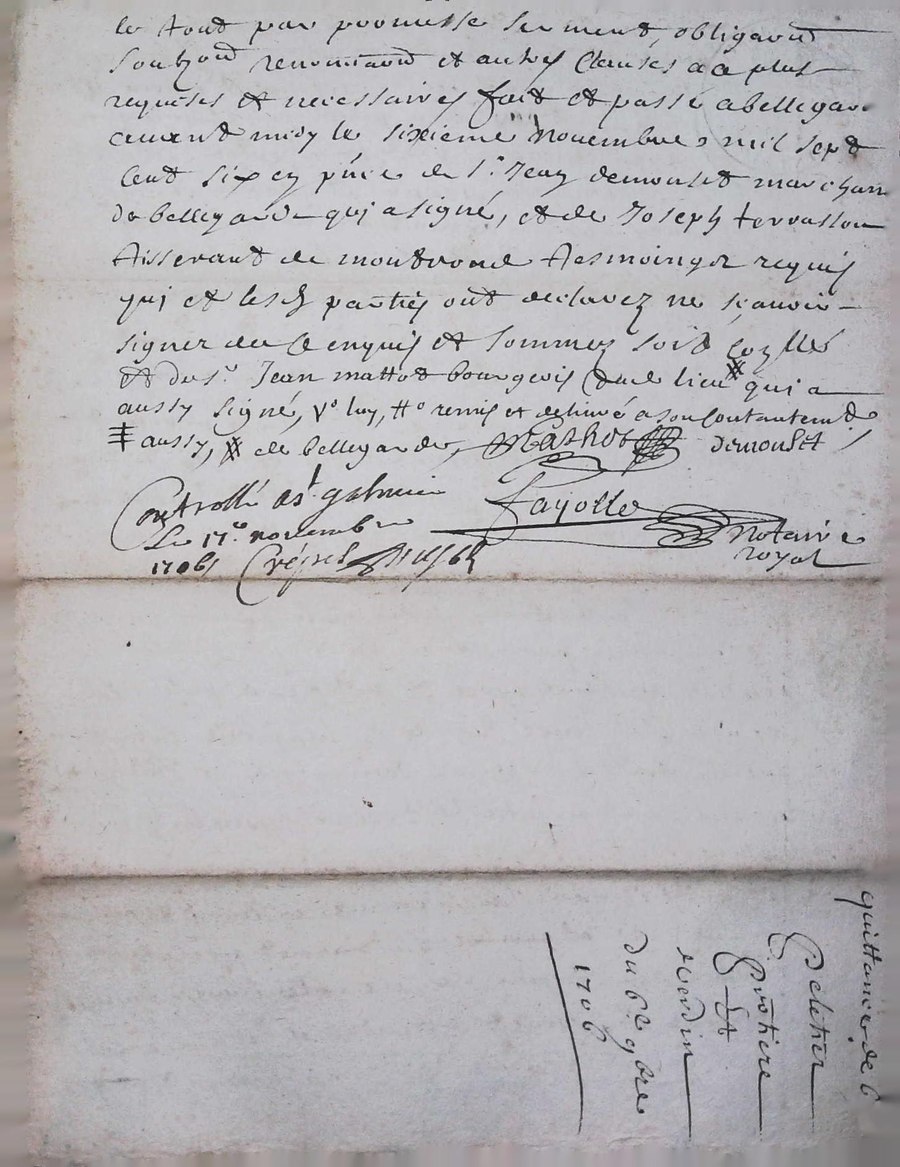 le tout par promesse serment, obligaon
soubzon renontiaon et autres clauses a a plus
requises et necessaires fait et passé a bellegar
avant midy le sixieme novembre mil sept
cent six en pnce de sr Jean demoulet marchan
de bellegarde qui a signé, et de Joseph terrasson
tisserant de montrond tesmoingz requis
qui et lesd parties ont declarez ne sçavoir
signer de ce enquis et sommez soit
et du sr Jean mattot bourgeois dud lieu qui a
aussy signé, remis et deslivré a son contantemt
aussy, de bellegarde, Mathot demoulet
Controllé a st galmier fayolle
Le 17e novembre Notaire
1706 Crépet royal
quittance de 6
peletier
Protiere
et
verdin
du 6e 9bre
1706